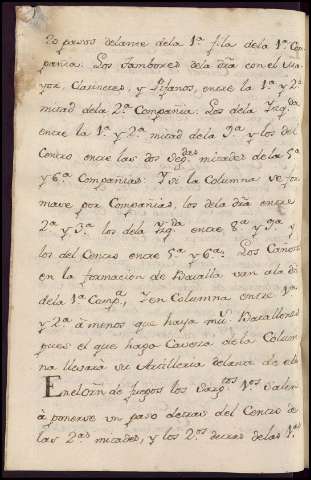 20 pasos delante dela 1ª fila de la 1ª Com
pañia. Los Tambores dela dra con el Ma
yor, Clarinetes, y Pifanos, entre la 1ª y 2ª
mitad dela 2ª Compañia. Los dela Yzqda
entre la 1ª y 2ª mitad dela 9ª y los del
Centro entre las dos Segdas mitades de la 5ª
y 6ª Compañias: Y si la Columna se for
mase por Compañias, los dela dra entre
2ª y 3ª los dela Yzqda entre 8ª y 9ª y
los del Centro entre 5ª y 6ª. Los Cañons
en la formacion de Batalla van ala dra
dela 1ª Compª, y en Columna entre 1ª
y 2ª à menos que haya ms Batallones
pues el que haga Caveza dela Colum
na llevarà su Artilleria delante de ella
En el orn de fuegos los Sargtos 1os Salen
à ponerse un paso detras del Centro de
las 2as mitades, y los 2os detras delas 1as